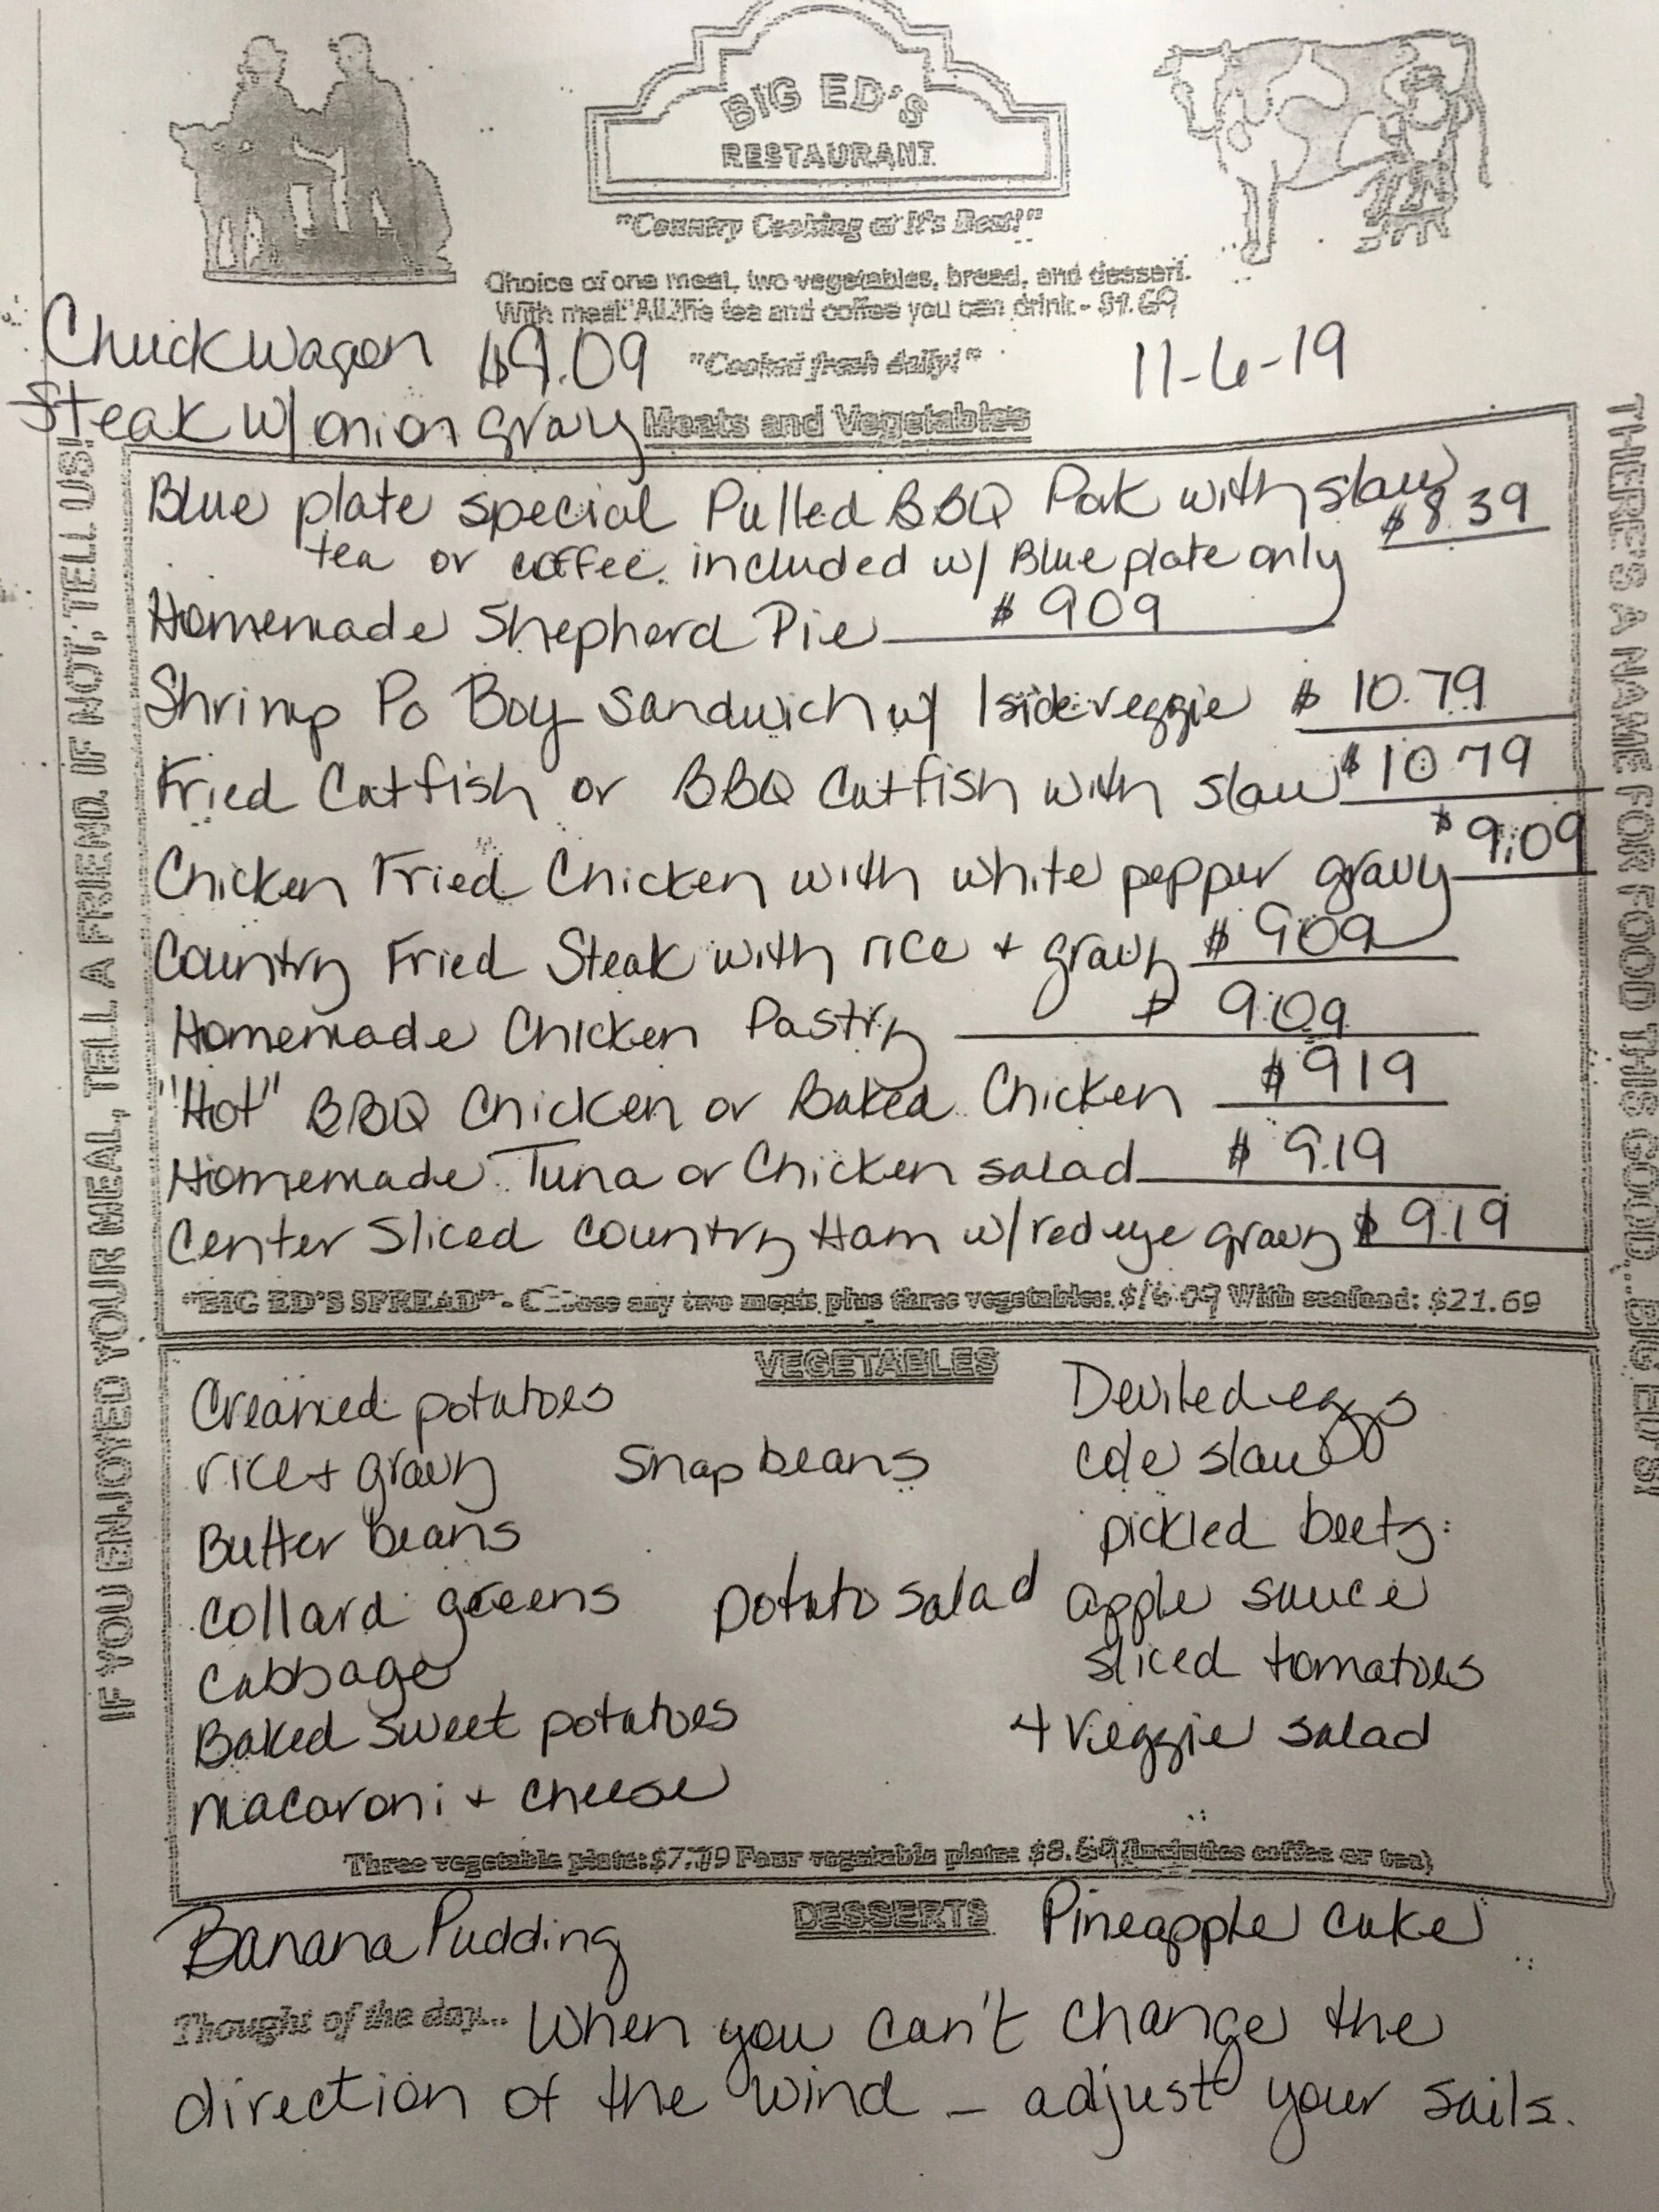 BIG ED'S
RESTAURANT
"Country Cooking at It's Best!"
Choice of one meat, two vegetables, bread, and dessert.
With meal "All the tea and coffee you can drink - $1.69
Chuckwagon $9.09 "Cooked fresh daily!" 11-6-19
Steak w/ onion gravy Meats and Vegetables
Blue plate special Pulled BBQ Pork with slaw $8.39
tea or coffee included w/ Blue plate only
Homemade Shepherd Pie $909
Shrimp Po Boy Sandwich w/ 1 side veggie $10.79
Fried Catfish or BBQ Catfish with slaw $10 79
Chicken Fried Chicken with white pepper gravy $9.09
Country Fried Steak with rice + gravy $909
Homemade Chicken Pastry $9.09
"Hot" BBQ Chicken or Baked Chicken $919
Homemade Tuna or Chicken salad $9.19
Center Sliced Country Ham w/ red eye gravy $919
"BIG ED'S SPREAD" - Choose any two meats plus three vegetables: With seafood: $21.69
VEGETABLES
Creamed potatoes Deviled eggs
rice + gravy Snap beans cole slaw
Butter beans pickled beets
Collard greens potato salad apple sauce
Cabbage sliced tomatoes
Baked sweet potatoes 4 Veggie salad
macaroni + cheese
Three vegetable plate: Four vegetable plate: $8.69 (includes coffee or tea)
DESSERTS
Banana Pudding Pineapple cake
Thought of the day... When you can't change the
direction of the wind - adjust your sails.
IF YOU ENJOYED YOUR MEAL, TELL A FRIEND. IF NOT, TELL US!
THERE'S A NAME FOR FOOD THIS GOOD... BIG ED'S!